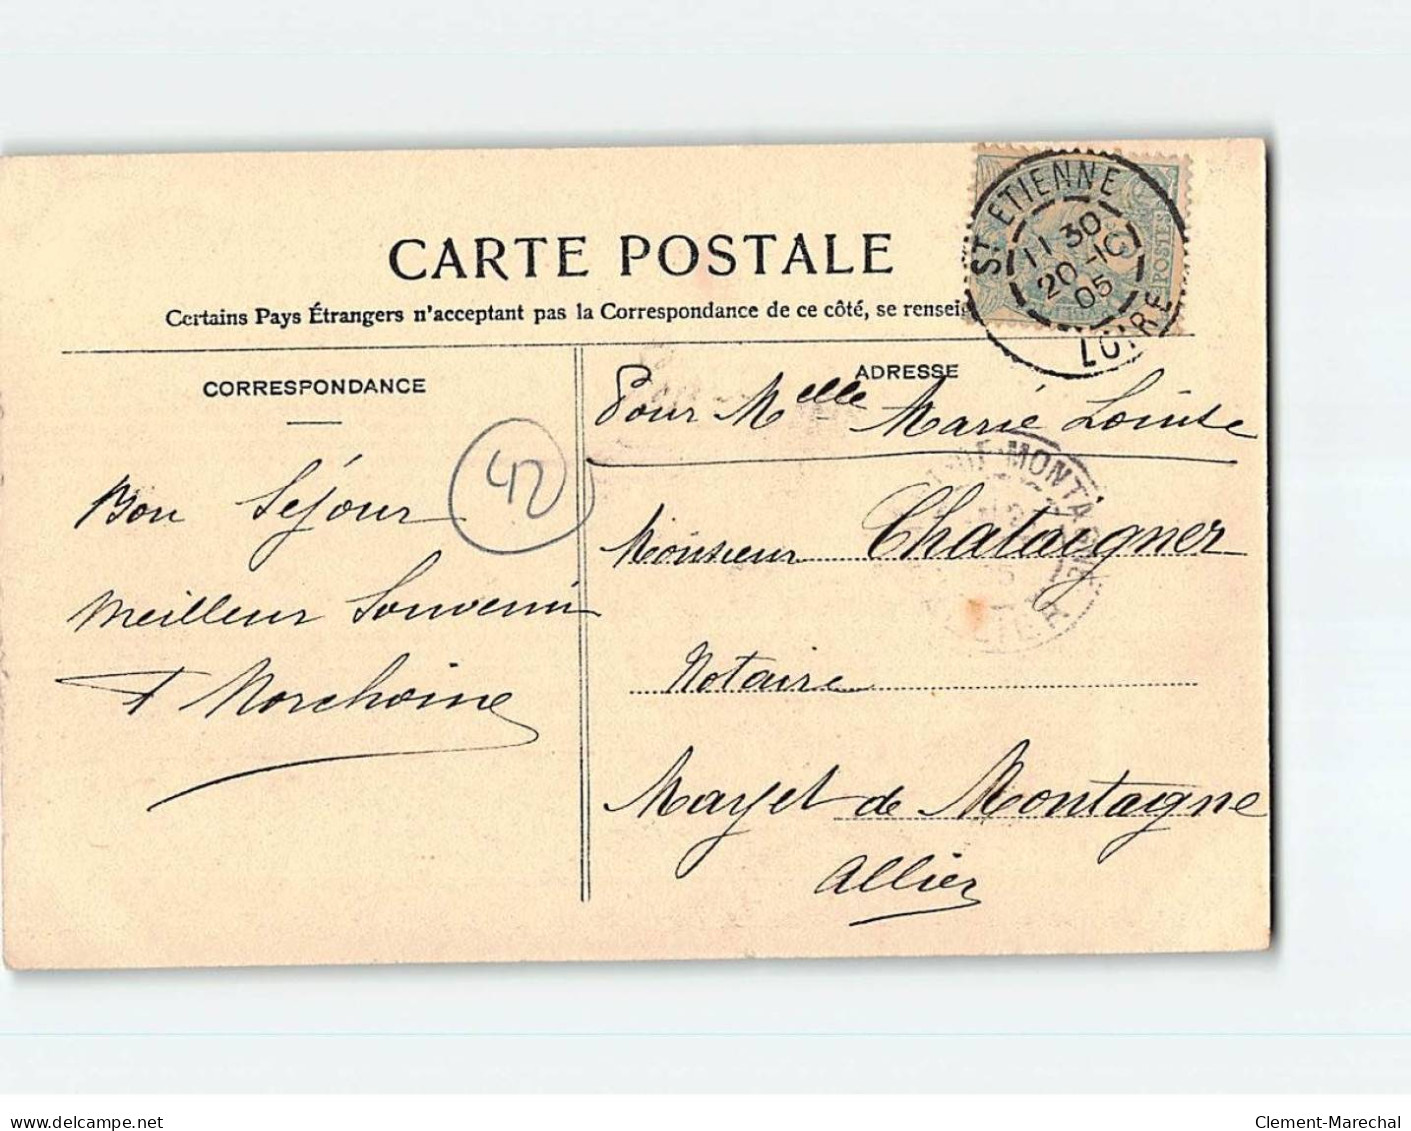 ST ETIENNE
11 30
20-10
05
LOIRE
POSTES
CARTE POSTALE
Certains Pays Étrangers n'acceptant pas la Correspondance de ce côté, se renseig
CORRESPONDANCE
ADRESSE
42
Bon Séjour
Meilleur Souvenir
Morchoine
Pour Melle Marie Louise
Monsieur Chataigner
Notaire
Mayet de Montagne
Allier
MONTAGNE
delcampe.net
Clement-Marechal